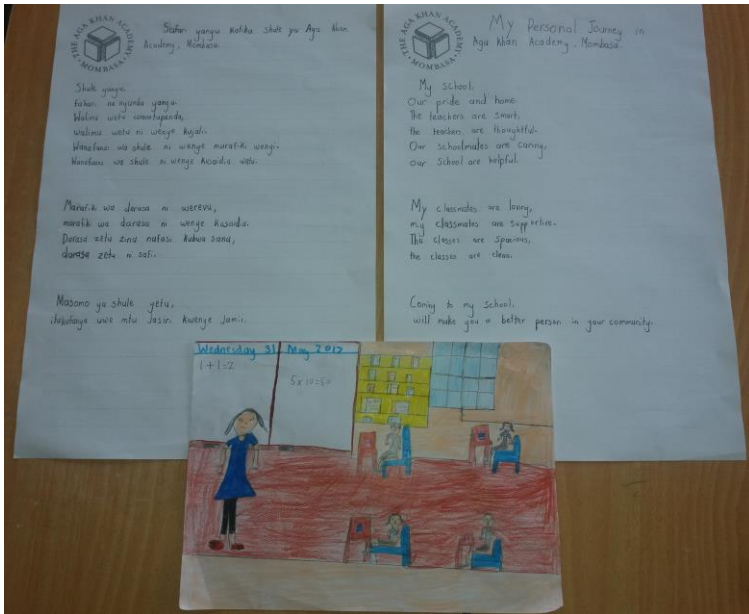 THE AGA KHAN ACADEMY
MOMBASA
Safari yangu katika shule ya Aga Khan
Academy, Mombasa.
Shule yangu,
fahari na nyumba yangu.
Walimu wetu
walimu wetu ni wenye kujali.
Wanafunzi wa shule ni wenye marafiki wengi.
Wanafunzi wa shule ni wenye kusaidia watu.
Marafiki wa darasa ni werevu,
marafiki wa darasa ni wenye kusaidia.
Darasa zetu zina nafasi kubwa sana,
darasa zetu ni safi.
Masomo ya shule yetu,
itakufanya uwe mtu Jasiri kwenye Jamii.
THE AGA KHAN ACADEMY
MOMBASA
My Personal Journey in
Aga Khan Academy, Mombasa.
My school,
Our pride and home.
The teachers are smart,
the teachers are thoughtful.
Our schoolmates are caring,
our School are helpful.
My classmates are loving,
my classmates are supportive.
The classes are spacious,
the classes are clean.
Coming to my school,
will make you a better person in your community.
Wednesday 31 May 2017
1+1=2
5x10=50